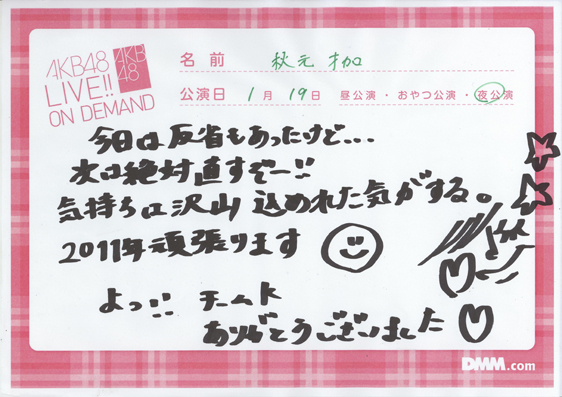 AKB48
LIVE!!
ON DEMAND
AKB
48
名前 秋元才加
公演日 1月19日 昼公演・おやつ公演・夜公演
今日は反省もあったけど...
次は絶対直すぞー!!
気持ちは沢山込めれた気がする。
2011年頑張ります
よっ!! チームK
ありがとうございました
DMM.com